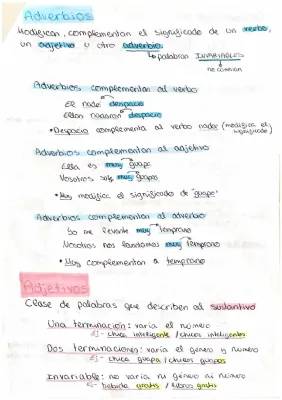 Adverbios
Modifican, complementan el significado de un verbo,
un adjetivo u otro adverbio.
↳ palabras INVARIABLES
no cambian
Adverbios complementan al verbo
Él nada despacio
Ellas nadaron despacio
• Despacio complementa al verbo nadar (modifica el significado)
Adverbios complementan al adjetivo
Ella es muy guapa
Nosotros sois muy guapos
• Muy modifica el significado de "guapo"
Adverbios complementan al adverbio
Yo me levanté muy temprano
Nosotros nos levantamos muy temprano
• Muy complementan a temprano
Adjetivos
Clase de palabras que describen al sustantivo
Una terminación: varía el número
Ej- chica inteligente / chicos inteligentes
Dos terminaciones: varía el género y número
Ej- chica guapa / chicos guapos
Invariable: no varía ni género ni número
Ej- bebida gratis / libros gratis